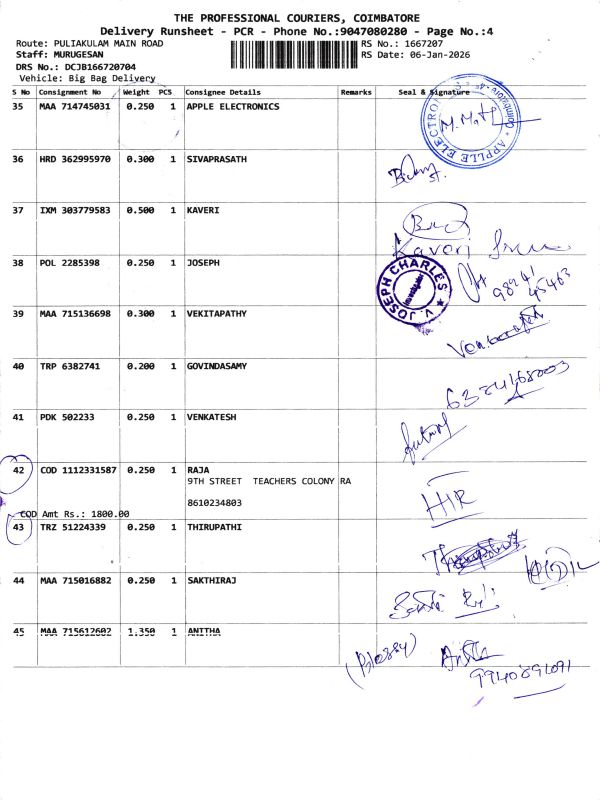 THE PROFESSIONAL COURIERS, COIMBATORE
Delivery Runsheet - PCR - Phone No.:9047080280 - Page No.:4
Route: PULIAKULAM MAIN ROAD RS No.: 1667207
Staff: MURUGESAN RS Date: 06-Jan-2026
DRS No.: DCJB166720704
Vehicle: Big Bag Delivery
S No Consignment No Weight PCS Consignee Details Remarks Seal & Signature
35 MAA 714745031 0.250 1 APPLE ELECTRONICS
APPLE ELECTRONICS Coimbatore
36 HRD 362995970 0.300 1 SIVAPRASATH
37 IXM 303779583 0.500 1 KAVERI
Kaveri
38 POL 2285398 0.250 1 JOSEPH
V. JOSEPH CHARLES
39 MAA 715136698 0.300 1 VEKITAPATHY
40 TRP 6382741 0.200 1 GOVINDSAMY
41 PDK 502233 0.250 1 VENKATESH
42 COD 1112331587 0.250 1 RAJA
9TH STREET TEACHERS COLONY RA
8610234803
COD Amt Rs.: 1800.00
43 TRZ 51224339 0.250 1 THIRUPATHI
44 MAA 715016882 0.250 1 SAKTHIRAJ
45 MAA 715612602 1.350 1 ANITHA